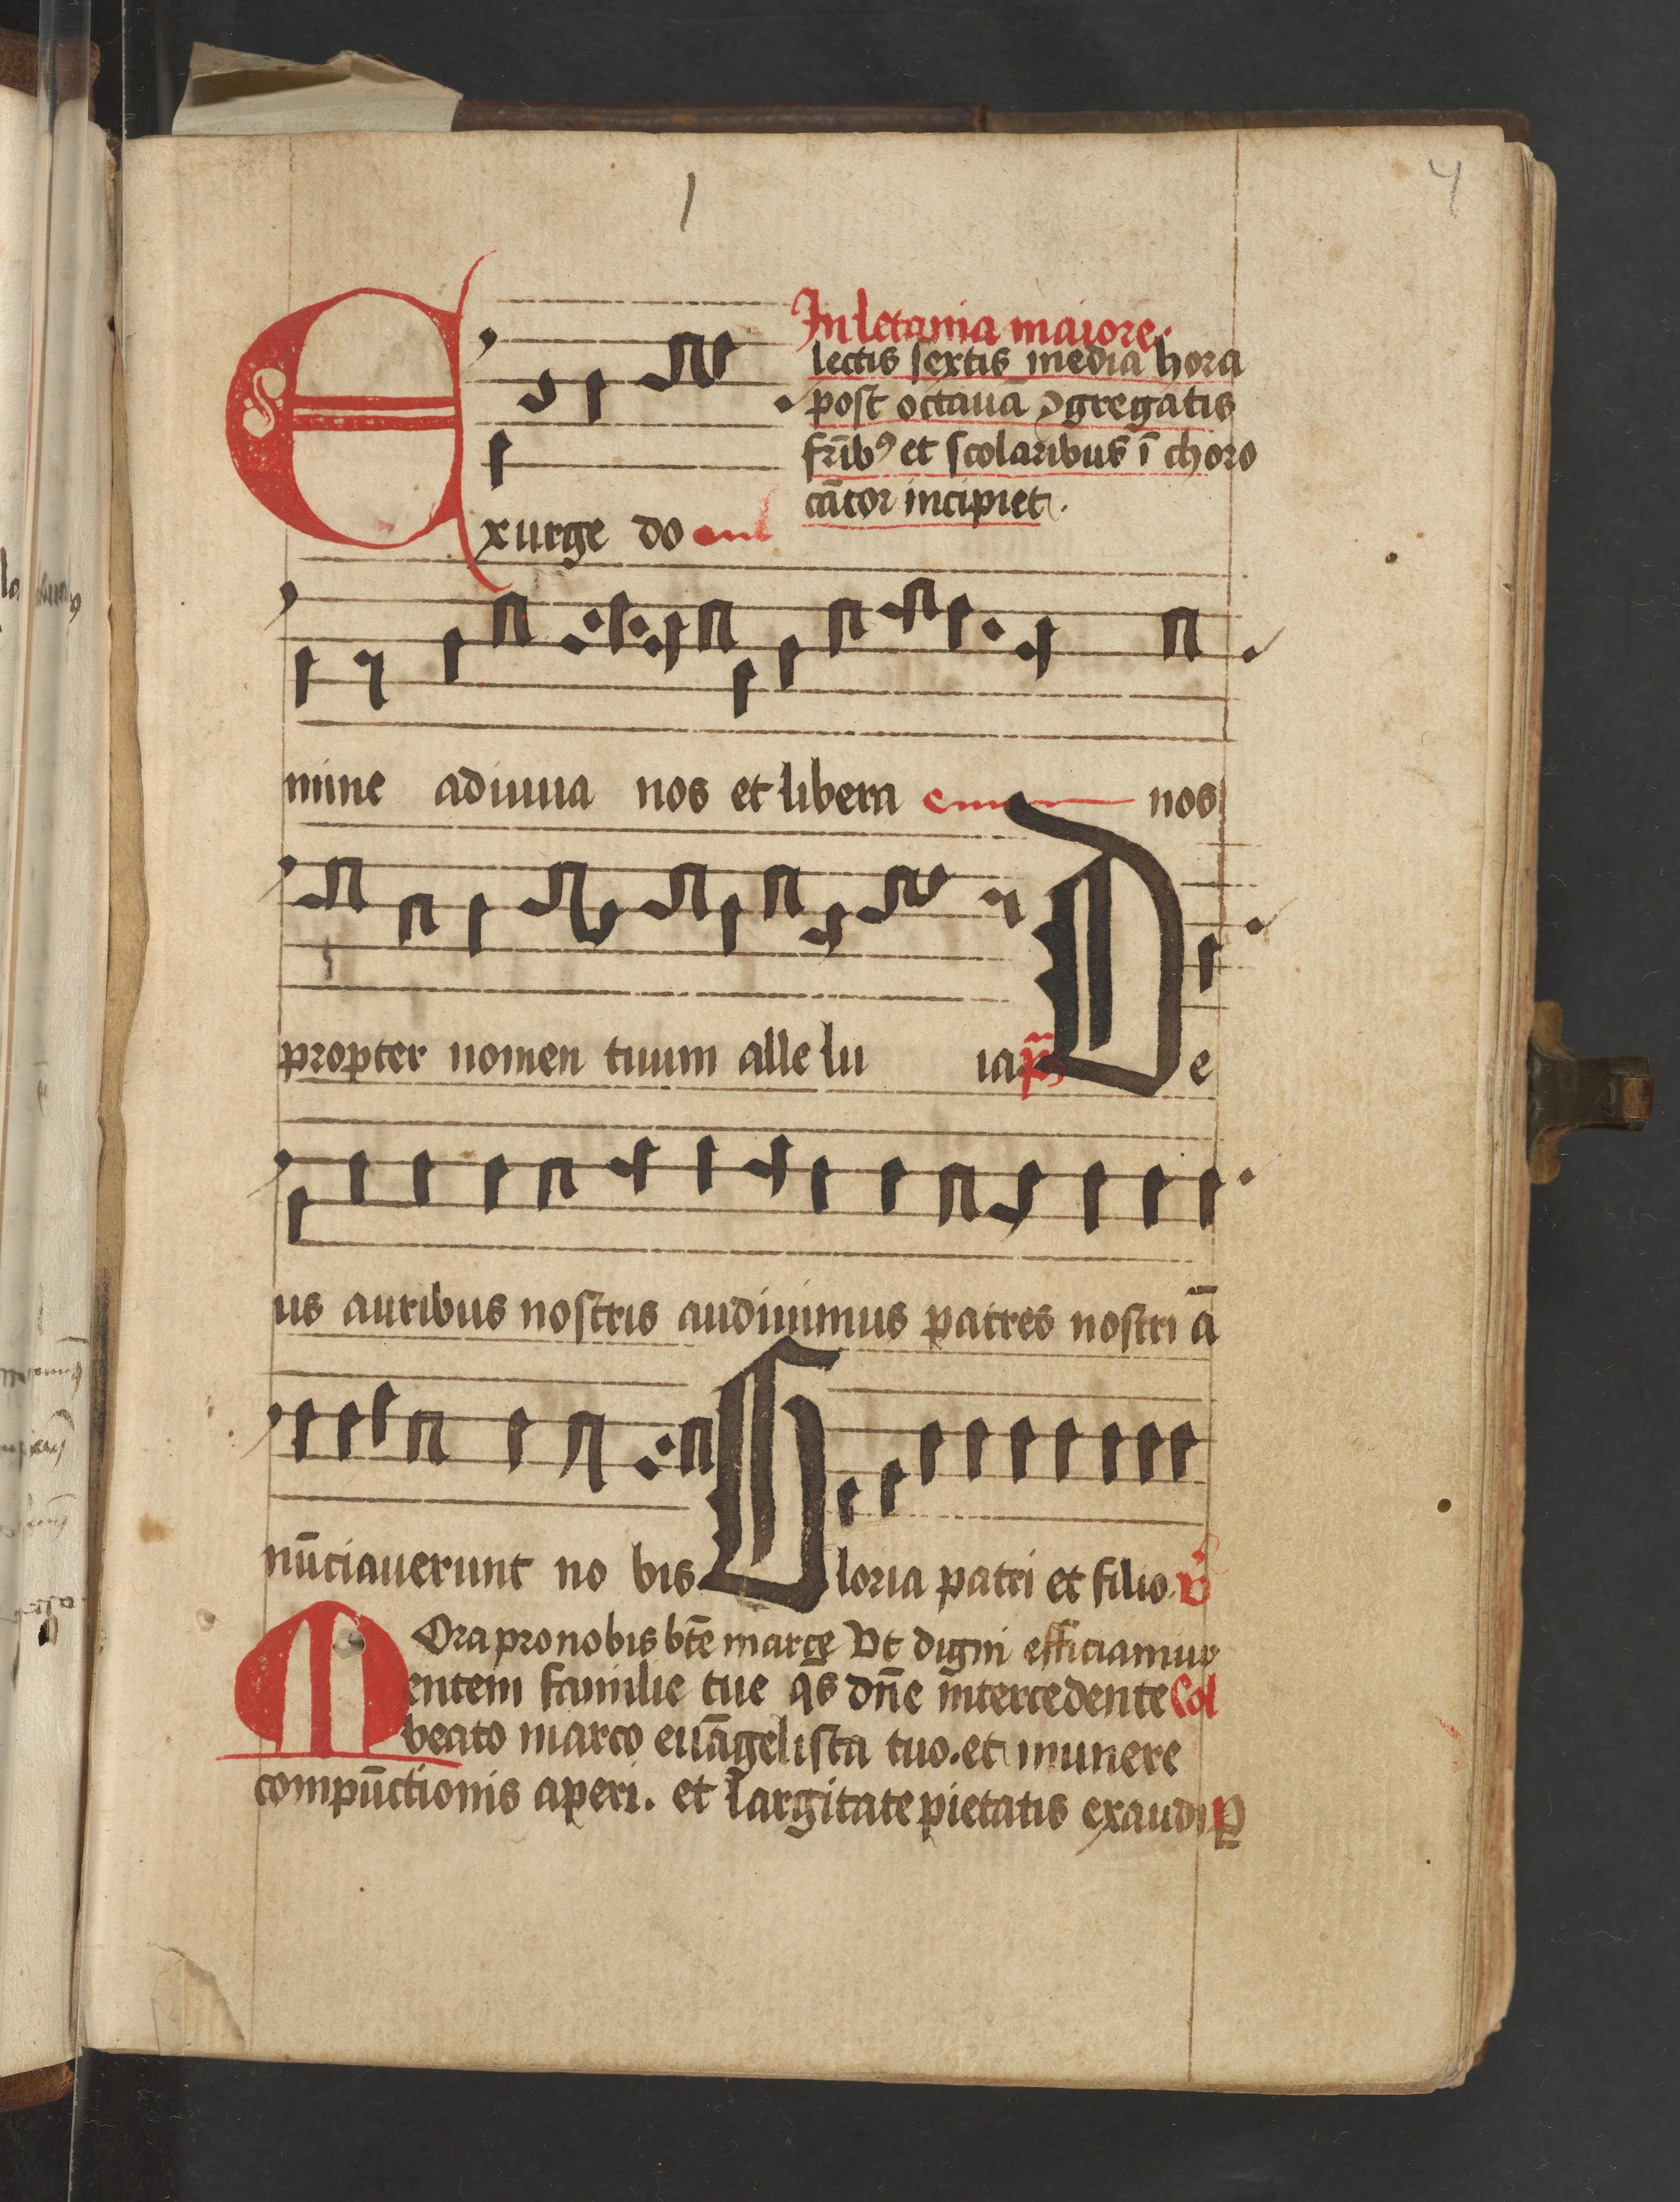 1
4
In letania maiore.
lectis sextis media hora
post octauā ↄgregatis
fr̄ibꝰ et scolaribus ī choro
cātor incipiet.
Exurge do
mine adiuua nos et libera nos
propter nomen tuum alle lu ia p̄s De
us auribus nostris audiuimus patres nostri ā
nūciauerunt no bis Gloria patri et filio. v̄
Ora pro nobis bt̄e marce Vt digni efficiamur
Mentem familie tue qs dn̄e intercedente Col
beato marco euāgelista tuo. et munere
compūctionis aperi. et largitate pietatis exaudi ꝑ